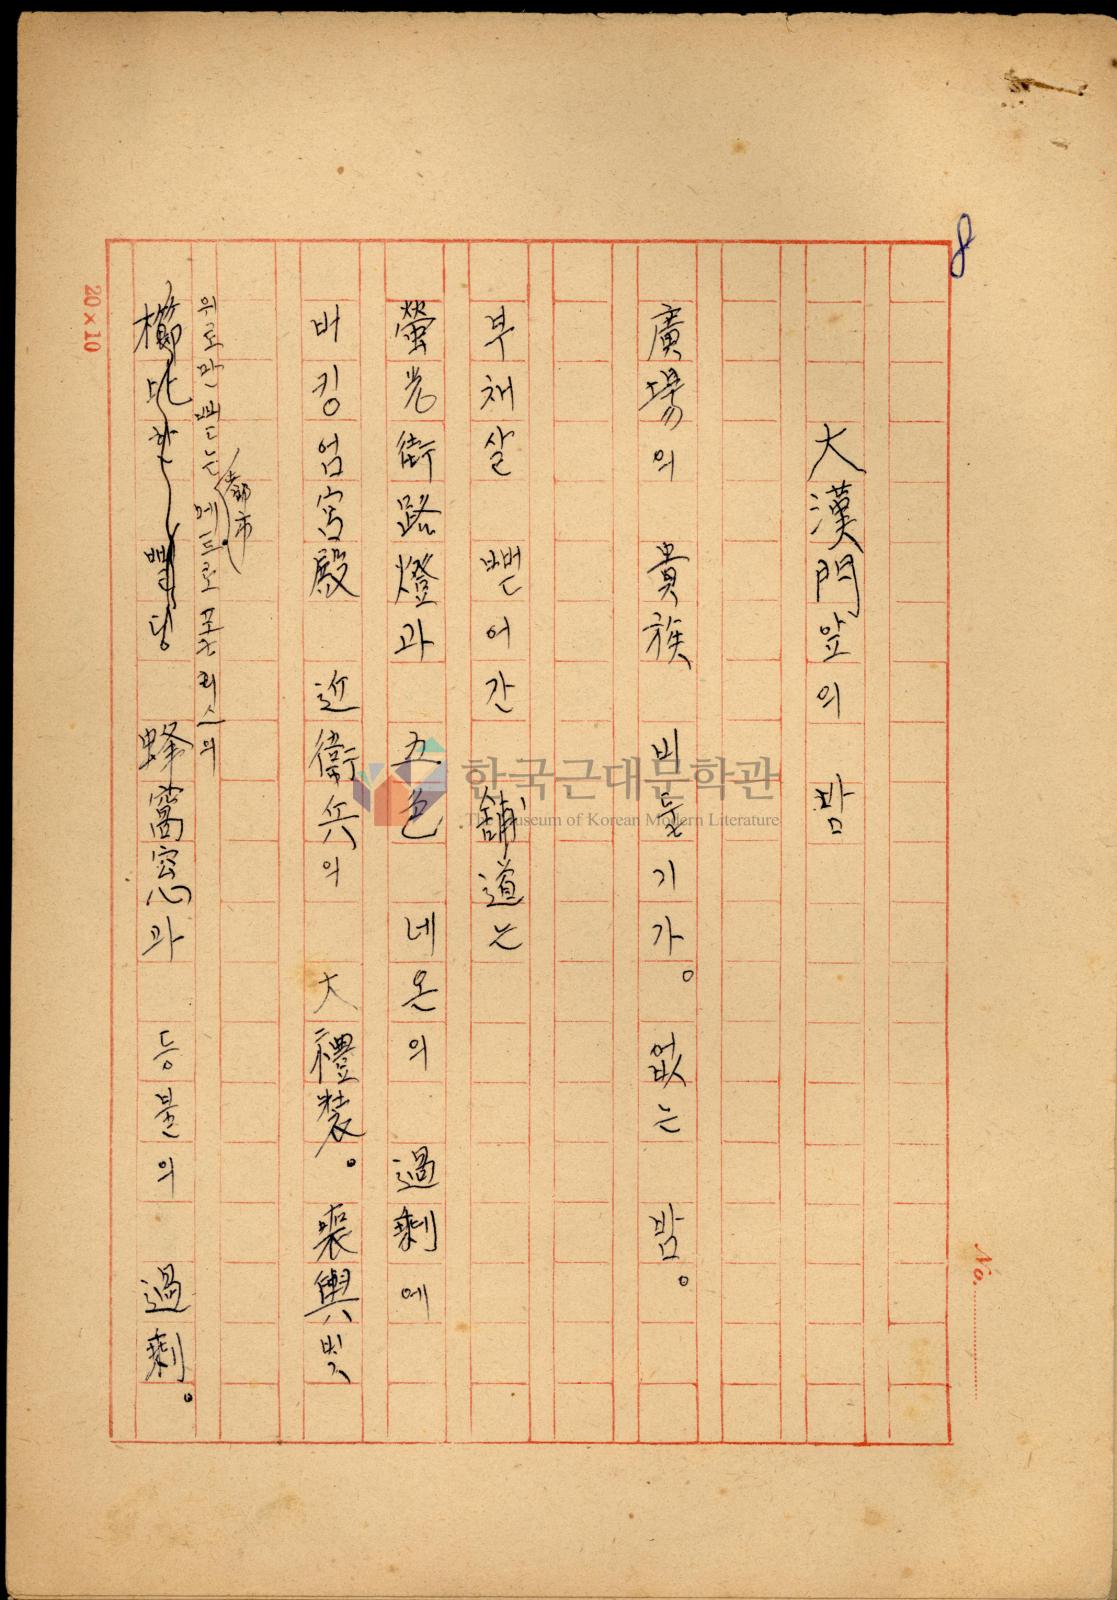 8
大漢門앞의 밤
廣場의 貴族 비둘기가。없는 밤。
부채살 뻗어간 舖道는
螢光街路燈과 五色 네온의 過剩에
버킹엄宮殿 近衛兵의 大禮裝。喪輿빛
都市
위로만 뻗는 메트로폴리스의
櫛比한 삘딩 蜂窩窓과 등불의 過剩。
20×10
No.
한국근대문학관
The Museum of Korean Modern Literature